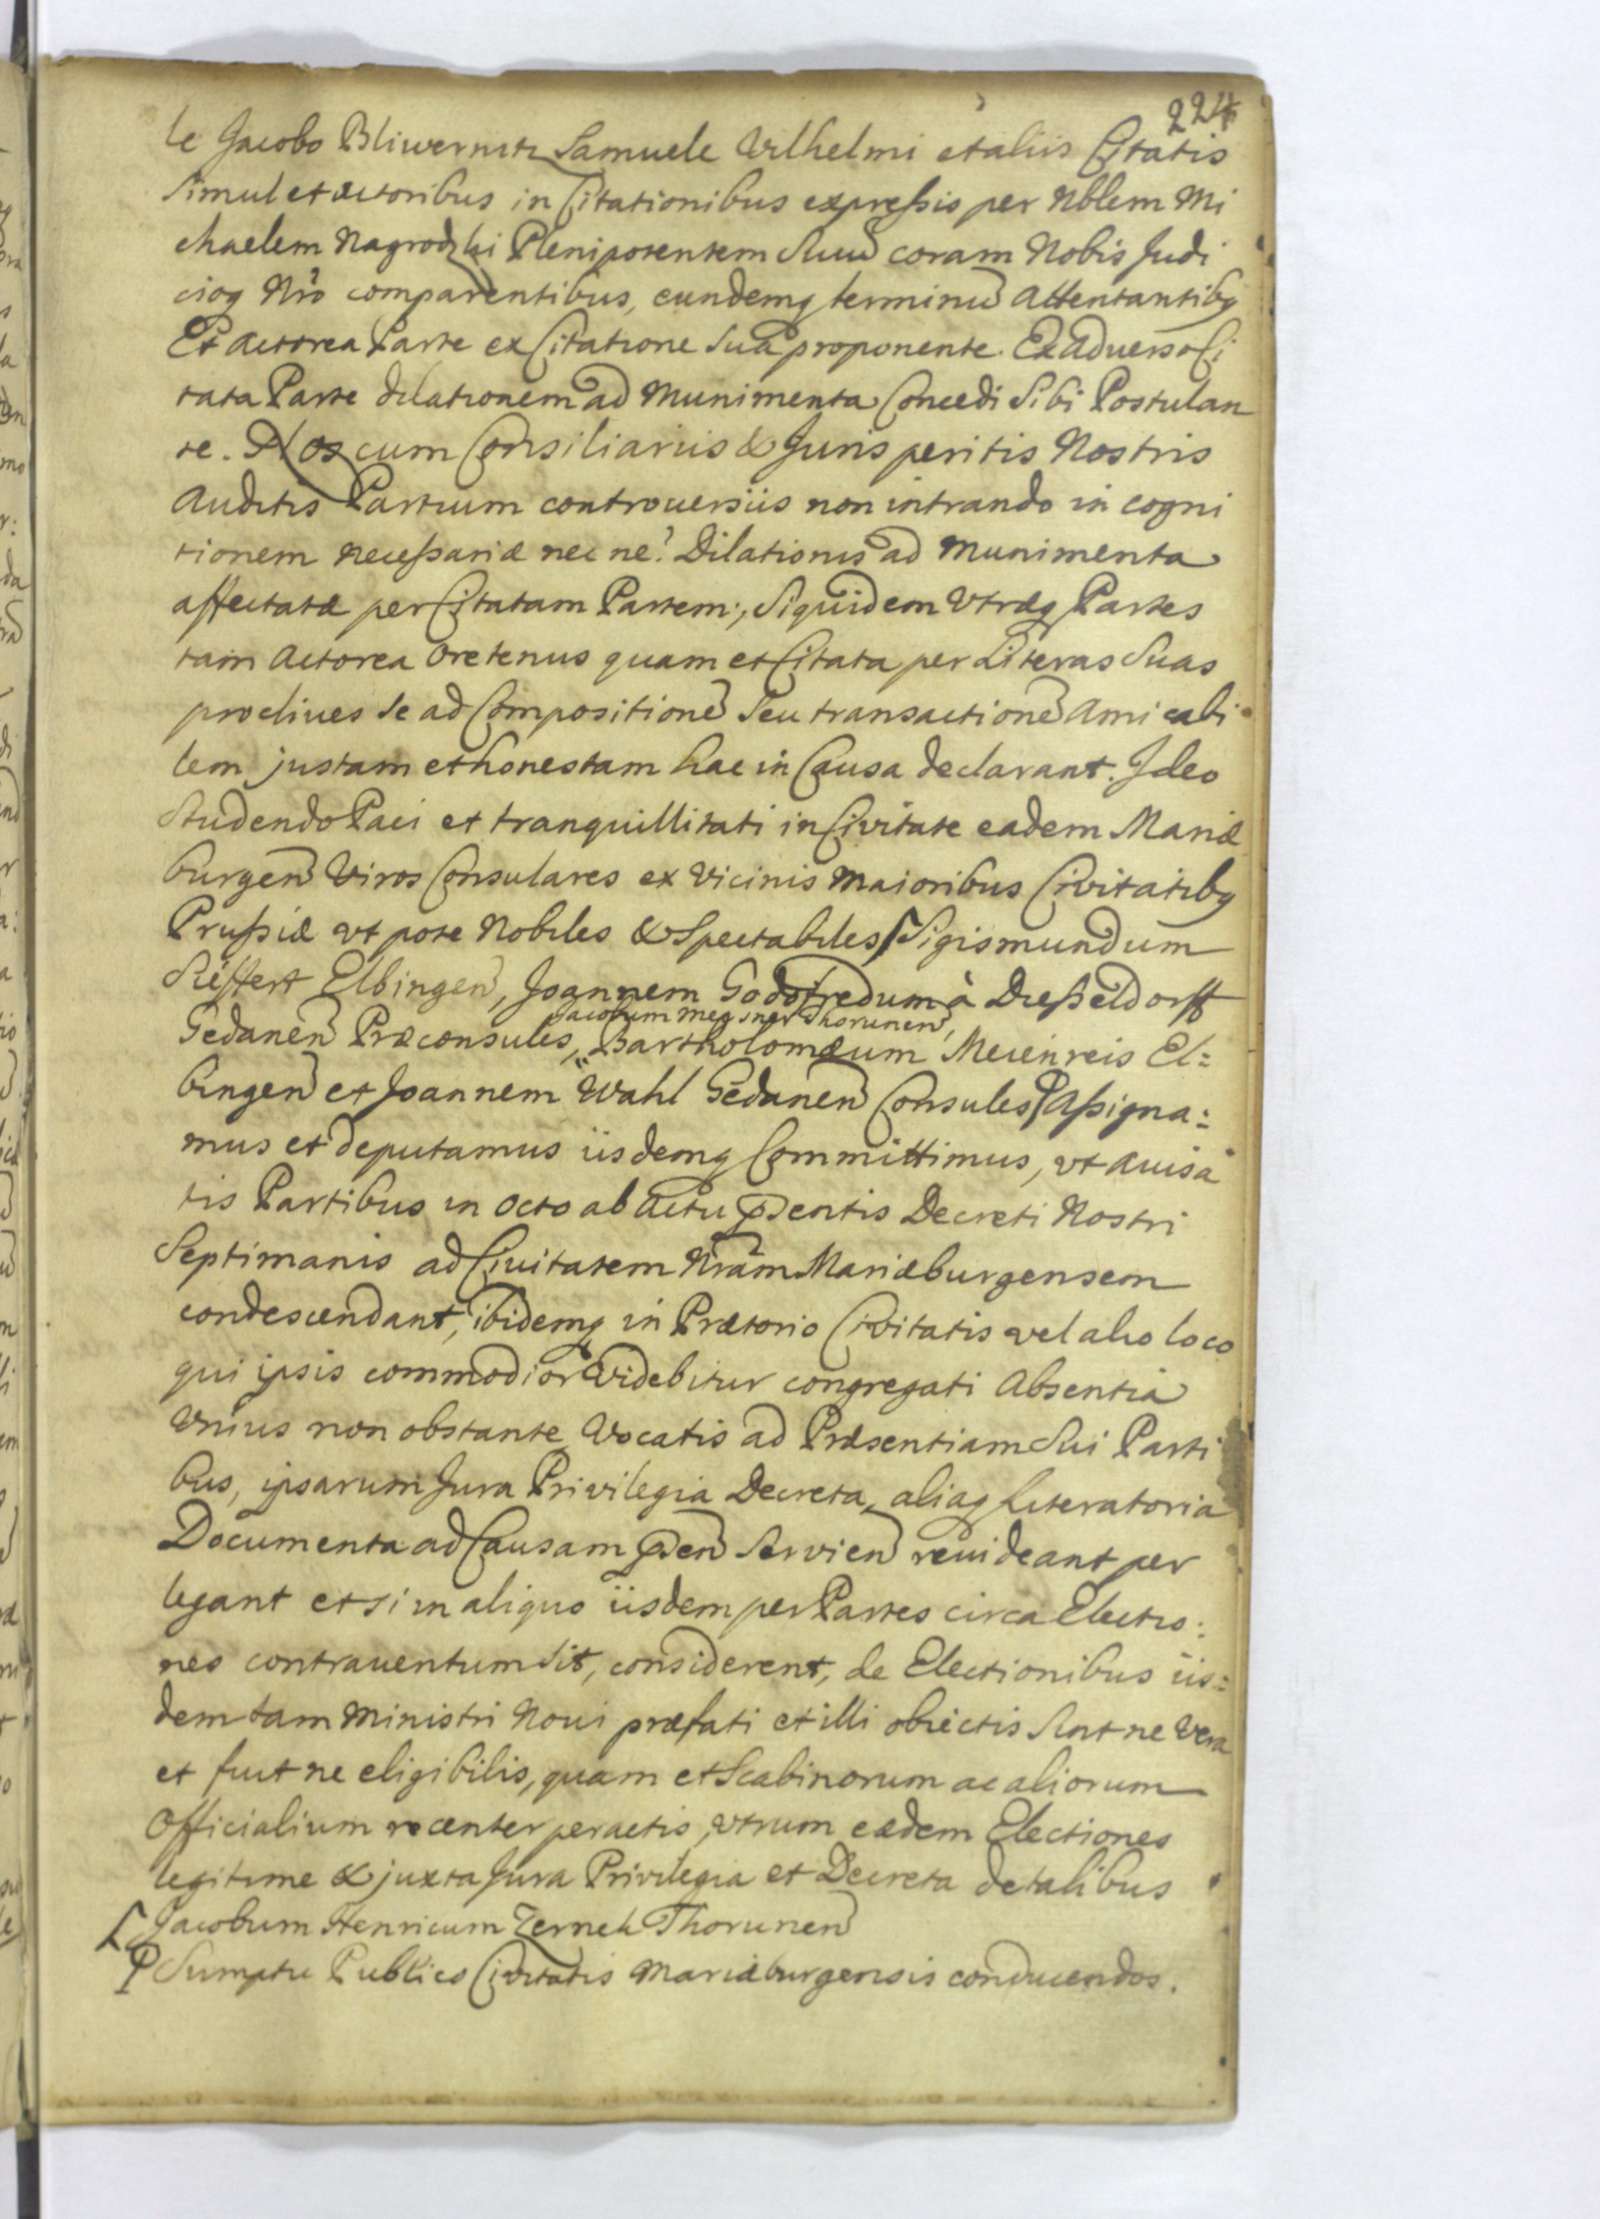 224
le Jacobo Bliwernitz Samuele Wilhelmi et aliis Citatis
simul et actoribus in Citationibus expreßis per Nblem Mi
chaelem Nagrodzki Plenipotentem Suũ coram Nobis Judi
cioq Nrõ comparentibus, eundemq terminũ attentantibq
Et actorea Parte ex Citatione sua proponente. Ex adverso Ci
tata Parte dilationem ad Munimenta Concedi Sibi Postulan
te. Nos cum Consiliariis & Juris peritis Nostris
Auditis Partium controuersiis non intrando in cogni
tionem neceßariæ nec ne? Dilationis ad Munimenta
affectatæ per Citatam Partem; Siquidem Vtræq Partes
tam Actorea oretenus quam et Citata per Literas Suas
proclives se ad Compositionẽ seu transactionẽ Amicabi
lem justam et honestam hac in Causa declarant. Ideo
Studendo Paci et tranquillitati in Civitate eadem Mariæ
burgen Viros Consulares ex Vicinis Maioribus Civitatibq
Prußiæ vt pote Nobiles & Spectabiles Sigismundum
Sieffert Elbingen, Joannem Godofredum à Dießeldorff
Jacobum Meisner Thorunen,
Gedanen Præconsules, Bartholomæum Meienreis El=
bingen et Joannem Wahl Gedanen Consules Aßigna=
mus et deputamus iisdemq Committimus, vt avisa
tis Partibus in octo ab actu pñsentis Decreti Nostri
Septimanis ad Civitatem Nrãm Mariæburgensem
condescendant, ibidemq in Prætorio Civitatis vel alio loco
qui ipsis commodior Videbitur congregati Absentia
Vnius non obstante Vocatis ad Præsentiam Sui Parti
bus, ipsarum Jura Privilegia Decreta, aliaq Literatoria
Documenta ad Causam pñsen Servien revideant per
legant et si in aliquo iisdem per Partes circa Electio=
nes contrauentum sit, considerent, de Electionibus iis=
dem tam Ministri Noui præfati et illi obiectis Sint ne Vera
et fuit ne eligibilis, quam et Scabinorum ac aliorum
Officialium recenter peractis, vtrum eædem Electiones
legitime & juxta Jura Privilegia et Decreta de talibus
Jacobum Henricum Zerneck Thorunen
Sumptu Publico Civitatis Mariæburgensis conducendos.